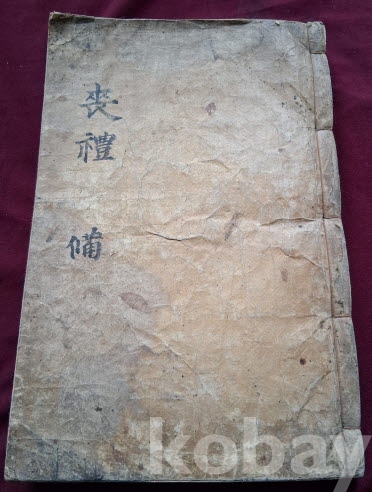 喪禮 備
kobay